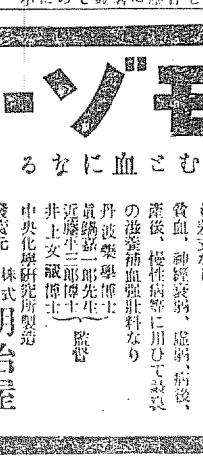 モゾー
むと血になる
貧血、神經衰弱、虚弱、病後、
產後、慢性病等に用ひて最良
の滋養補血強壯料なり
丹波藥學博士
眞鍋嘉一郎先生
近藤平三郎博士
井上文藏博士
監督
中央化學研究所製造
發賣元 株式 明治屋